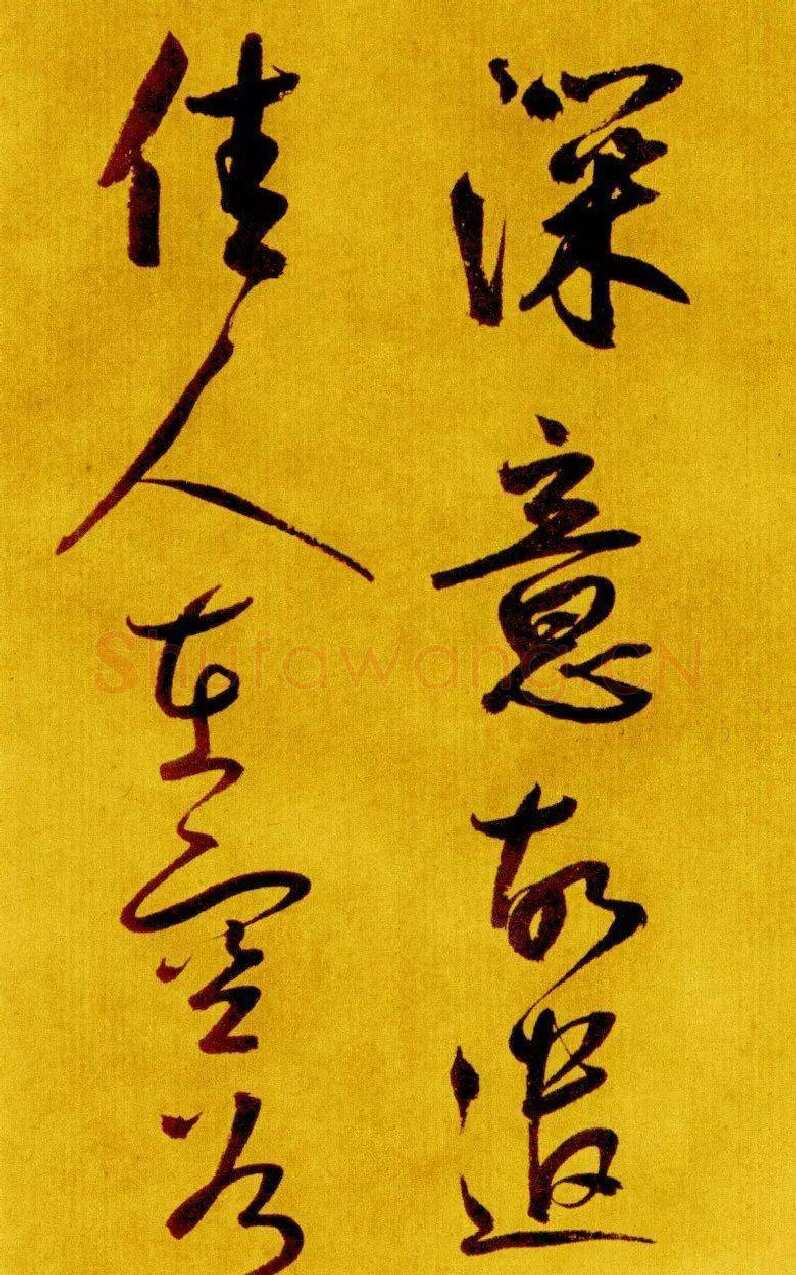 深意故遣
佳人在空谷
Shufawang.CN